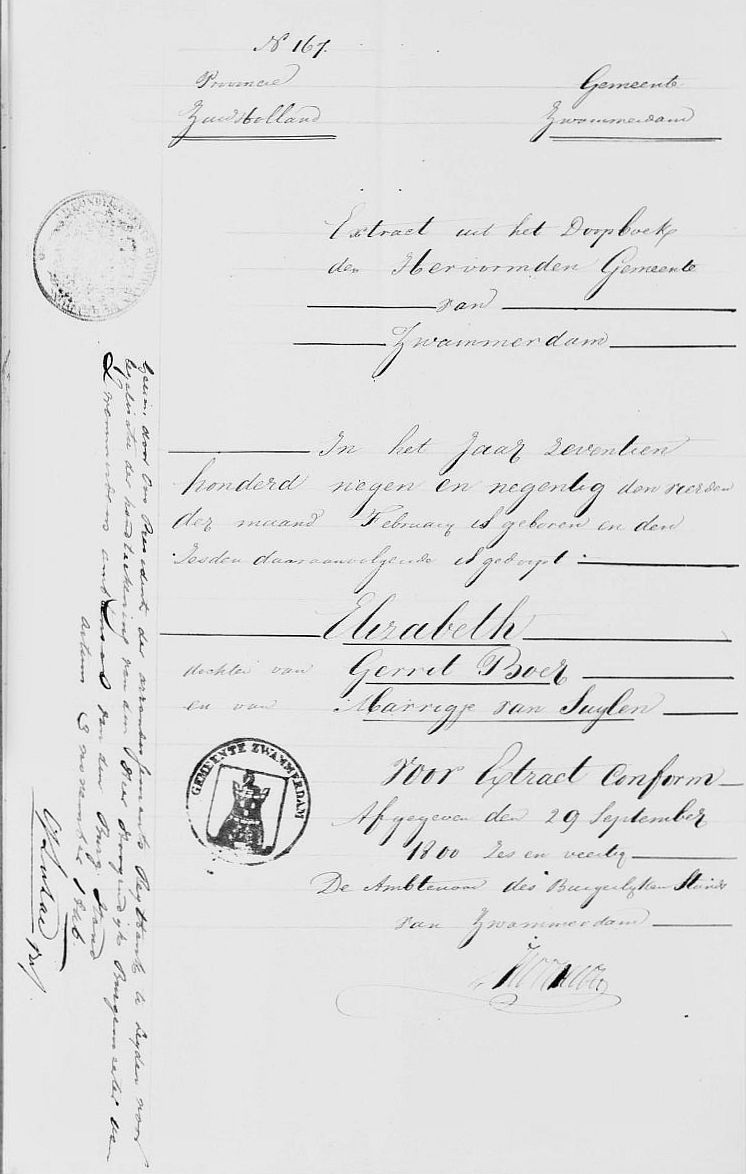 N 167.
Provincie
Zuid Holland
Gemeente
Zwammerdam
Extract uit het Doopboek
der Hervormden Gemeente
van
Zwammerdam
In het Jaar zeventien
honderd negen en negentig den vierden
der maand February is geboren en den
Zesden daaraanvolgende is gedoopt
Elizabeth
dochter van Gerrit Boer
en van Marrigje van Tuylen
GEMEENTE ZWAMMERDAM
Voor Extract Conform
Afgegeven den 29 September
1800 Zes en veertig
De Ambtenaar des Burgerlyken Stands
van Zwammerdam
Gezien door Ons President der arrondissements Regtbank te Leyden voor
legalisatie der handteekening van den Heer Burgemeester van
Zwammerdam ambtenaar van den Burg. Stand
8 november 1846